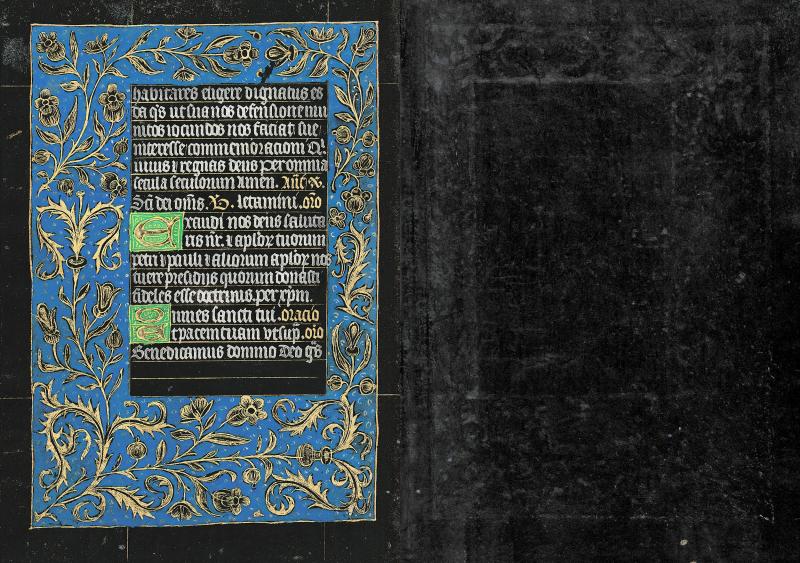 habitares eligere dignatus es
da qs ut sua nos defensione mu
nitos iocundos nos faciat sue
interesse commemoracioni Q
uiuis ⁊ regnas deus per omnia
secula seculorum Amen. Añ x.
Sci dei oms. V. letamini .oro
Exaudi nos deus saluta
ris nr. ⁊ aplor tuorum
petri ⁊ pauli ⁊ aliorum aplor nos
tuere presidijs quorum donasti
fideles esse doctrinis. per xpm.
Omnes sancti tui .oracio
Et pacem tuam vt sup. oro
Benedicamus domino Deo gs